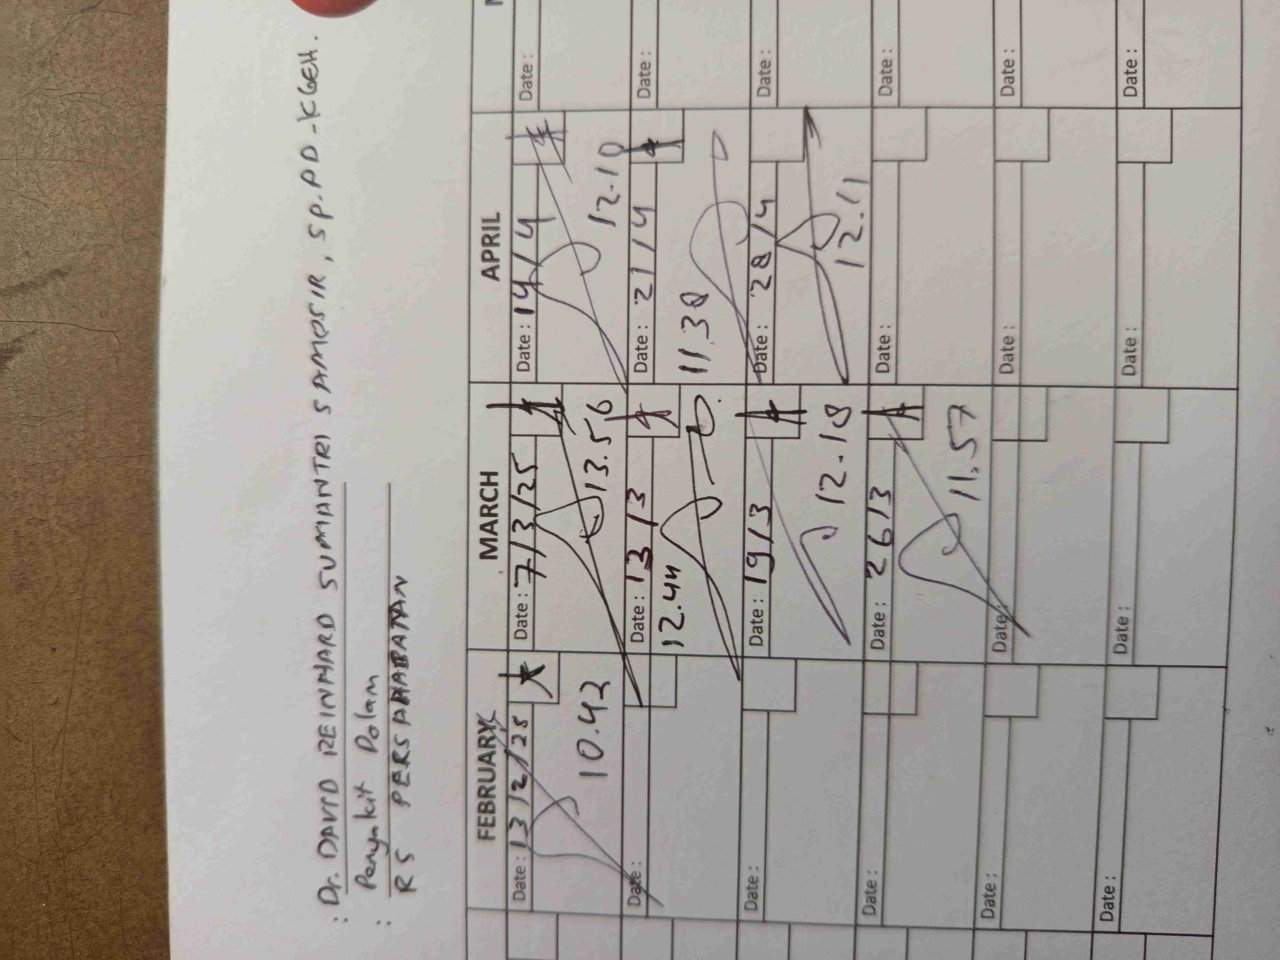 : Dr. DAVID REINHARD SUMANTRI SAMOSIR, SP.PD-KGEH.
Penyakit Dalam
: RS PERSAHABATAN
FEBRUARY MARCH APRIL
Date: 13/2/25 Date: 7/3/25 Date: 14/4 Date:
10.43 13.56 12.10
Date: Date: 13/3 Date: 21/4 Date:
12.44 11.38
Date: 19/3 Date: 28/4 Date:
12.18 12.11
Date: Date: 26/3 Date: Date:
11.57
Date: Date: Date: Date:
Date: Date: Date: Date: